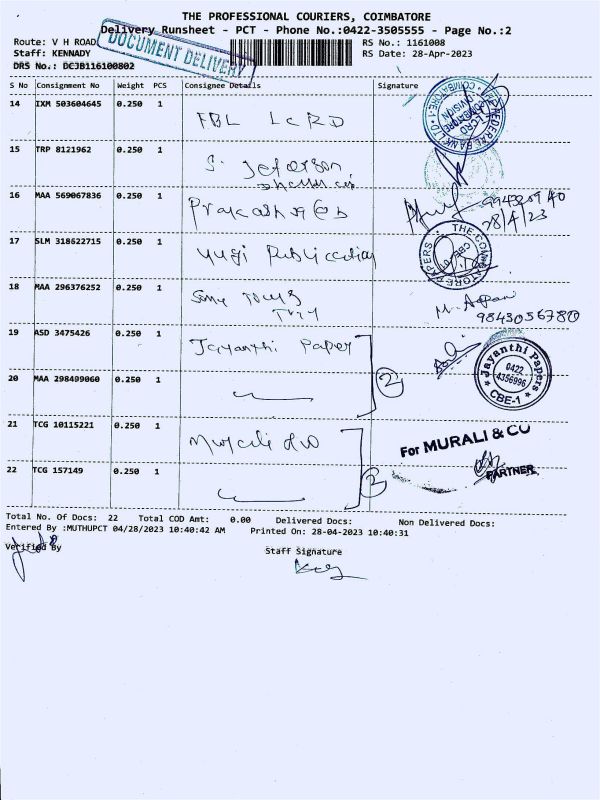 THE PROFESSIONAL COURIERS, COIMBATORE
Delivery Runsheet - PCT - Phone No.:0422-3505555 - Page No.:2
Route: V H ROAD
RS No.: 1161008
Staff: KENNADY
RS Date: 28-Apr-2023
DRS No.: DCJB116100802
DOCUMENT DELIVERY
S No Consignment No Weight PCS Consignee Details Signature
14 IXM 503604645 0.250 1 FBL LCRD
15 TRP 8121962 0.250 1 S. Jeferson
16 MAA 569067836 0.250 1
28/4/23
17 SLM 318622715 0.250 1 Yugi Publication
18 MAA 296376252 0.250 1 Sony Tours
9843056780
19 ASD 3475426 0.250 1 Jayanthi Paper
Jayanthi Papers
0422
4356996
CBE-1
20 MAA 298499060 0.250 1
2
21 TCG 10115221 0.250 1
For MURALI & CO
PARTNER.
22 TCG 157149 0.250 1
2
Total No. Of Docs: 22 Total COD Amt: 0.00 Delivered Docs: Non Delivered Docs:
Entered By :MUTHUPCT 04/28/2023 10:40:42 AM Printed On: 28-04-2023 10:40:31
Verified By
Staff Signature